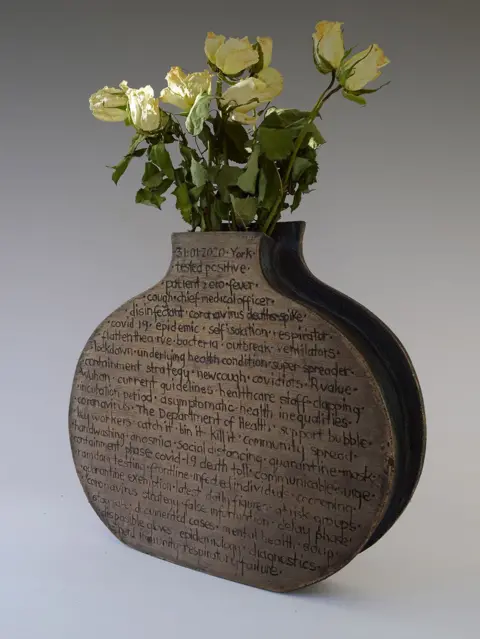 31·01·2020·York·
tested positive·
patient zero·fever·
cough·chief medical officer·
disinfectant·coronavirus deaths spike·
covid 19·epidemic·self isolation·respirator·
flatten the curve·bacteria·outbreak·ventilators·
lockdown·underlying health condition·super spreader·
containment strategy·new cough·covictions·R value·
Wuhan·current guidelines·healthcare staff·clapping·
incubation period·asymptomatic·health inequalities·
coronavirus·The Department of Health·support bubble·
key workers·catch it·bin it·kill it·community spread·
handwashing·anosmia·social distancing·quarantine·mask·
containment phase·covid-19 death toll·communicable·
testing·frontline·infected individual·
quarantine exemption·latest daily figure·groups·
coronavirus strategy·false information·delay phase·
documented cases·mental health·soap·
disposable gloves·epidemiology·diagnostics·
herd immunity·respiratory failure·